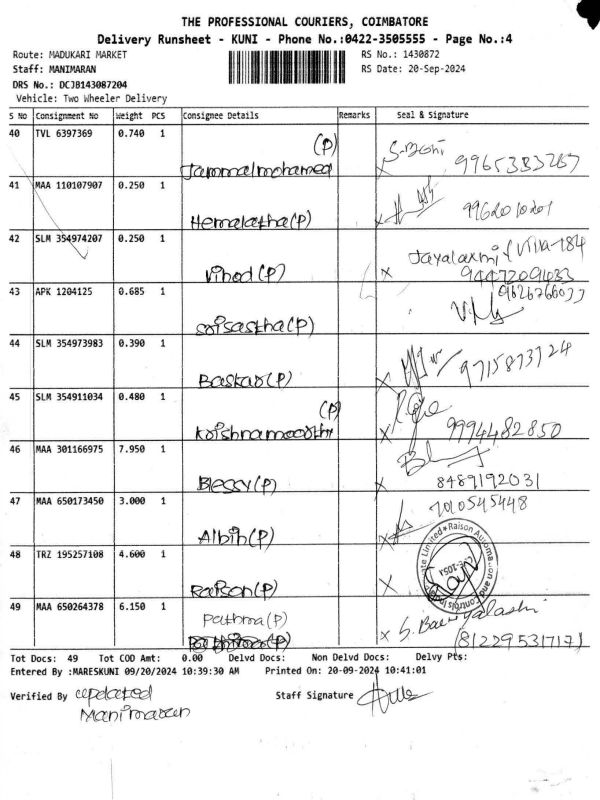 THE PROFESSIONAL COURIERS, COIMBATORE
Delivery Runsheet - KUNI - Phone No.:0422-3505555 - Page No.:4
Route: MADUKARI MARKET
RS No.: 1430872
Staff: MANIMARAN
RS Date: 20-Sep-2024
DRS No.: DCJB143087204
Vehicle: Two Wheeler Delivery
S No Consignment No Weight PCS Consignee Details Remarks Seal & Signature
40 TVL 6397369 0.740 1
(P)
Jammalmohamed
9965383267
41 MAA 110107907 0.250 1
Hemalatha(P)
9962010201
42 SLM 354974207 0.250 1
Jayalaxmi Villa-184
Vinod(P)
9447209633
43 APK 1204125 0.685 1
9626766077
Srisastha(P)
44 SLM 354973983 0.390 1
Baskar(P)
9715873724
45 SLM 354911034 0.480 1
(P)
Krishnamoorthi
9994482850
46 MAA 301166975 7.950 1
Blessy(P)
8489192031
47 MAA 650173450 3.000 1
7010545448
Albin(P)
48 TRZ 195257108 4.600 1
Raison(P)
49 MAA 650264378 6.150 1
Pathma(P)
8122953171
Tot Docs: 49 Tot COD Amt: 0.00 Delvd Docs: Non Delvd Docs: Delvy Pts:
Entered By :MARESKUNI 09/20/2024 10:39:30 AM Printed On: 20-09-2024 10:41:01
Verified By updated
Manimaran
Staff Signature